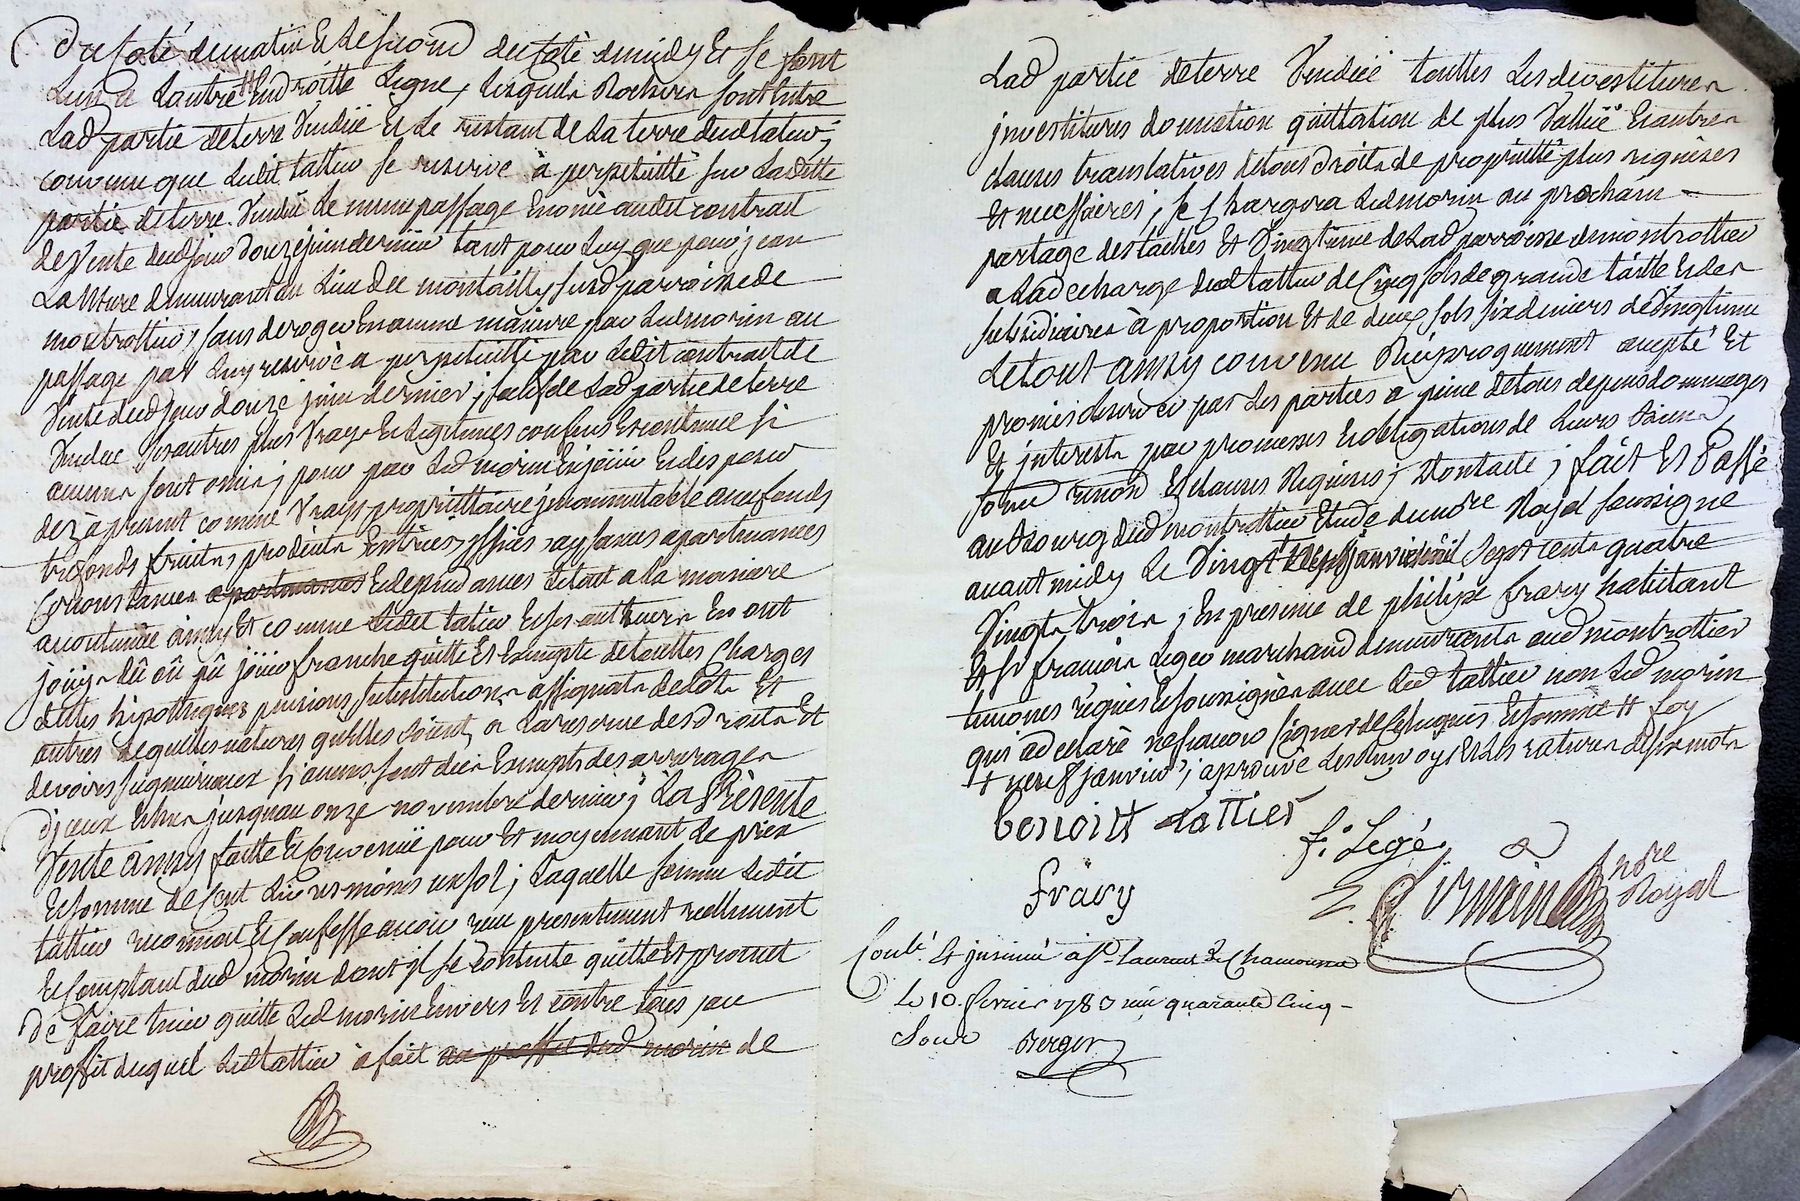 du coté de matin & le second du coté de midy Et se sont
L'un a L'autre Endroitte Ligne, Lesquels Rochers sont Entre
Lad partie de terre Vendüe Et Le restant de La terre dud tatier ;
convenu que Ledit tattier se reserve à perpetuitté sur Laditte
partie de terre Vendüe Le meme passage Enoncé audit contrait
de Vente dud jour douze juin dernier tant pour Luy que pour jean
demeurant au Lieu de montailly susd parroisse de
montrottier, sans deroger En aucune maniere par Led morin au
passage par Luy reservé a perpetuitté par Ledit contrait de
Vente dud jour douze juin dernier ; sauf de Lad partie de terre
Vendue ses autres plus Vrays & Legitimes confins Et contenue si
aucuns sont omis ; pour par Led morin En joüir Et disposer
dez à present comme Vray proprietaire jncommutable avec fonds
trefonds fruits, produits Entrées, jssües, aysances apartenances
Circonstances apartenances Et dependances Letout a la maniere
acoutumée ainsy Et comme Ledit tatier Et ses autheurs En ont
joüy dû oû pû joüir franche quitte Et Exempte de touttes Charges
dettes hipotheques pensions, substitutions assignats de dots Et
autres de quelles natures quelles soient, a La reserve des droits Et
devoirs seigneuriaux si aucuns sont dus Exempts des arrerages
d'jceux Echus jusquau onze novembre dernier ; La Présente
Vente ainsy faitte Et Convenüe pour Et moyennant Le prix
Et somme de Cent Livres moins un sol ; Laquelle somme Ledit
tattier reconnoit Et Confesse avoir reçu presentement reellement
Et Comptant dud morin dont jl se contente quitte Et promet
de faire tenir quitte Led morin Envers Et contre tous, au
proffit duquel Led tattier à fait au proffit dud morin de
Lad partie de terre Vendüe touttes Les devestitures
jnvestitures donnation quittation de plus Vallüe Et autres
clauses translatives de tous droits de proprietté plus requises
Et necessaires ; se Chargera Led morin au prochain
partage des tailles Et Vingtieme de Lad parroisse de montrottier
a La decharge dud tattier de Cinq sols de grande taille Et des
subsidiaires à proportion Et de deux sols six deniers de Vingtieme
Le tout ainsy convenu Réciproquement accepté Et
promis observer par Les parties a peine de tous depens dommages
Et jnterests par promesses Et obligations de Leurs biens,
renon Et clauses Requises ; Dontacte ; fait Et Passé
au bourg dud montrottier Etude du nore Royal soussigné
avant midy Le Vingt janvier mil Sept cents quatre
Vingts trois ; En presence de philipe fravy habitant
Et sr francois Legé marchand demeurants aud montrottier
temoins requis Et soussignés avec Led tattier non Led morin
qui a declaré ne scavoir signer de Ce Enquis Et sommé H foy
+ neuf janvier ; aprouvé Les Renvoys Et Les ratures de six mots
benoist tattier
f. Legé
fravy
nore
Royal
Conté. Et jnsinüé à St. Laurent de Chamousset
Le 10. fevrier 1783 reçu quarante Cinq
Sous
Berger